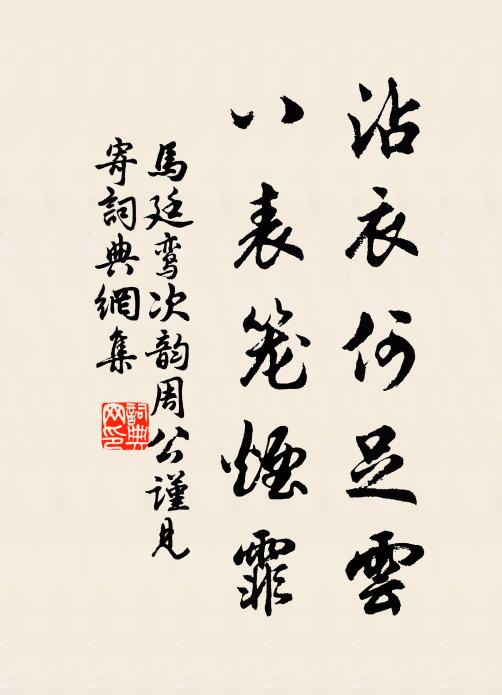 沾衣何足雲
八表笼煙霏
馬廷鸞次韵周公謹見
寄詞典網集
詞典网印